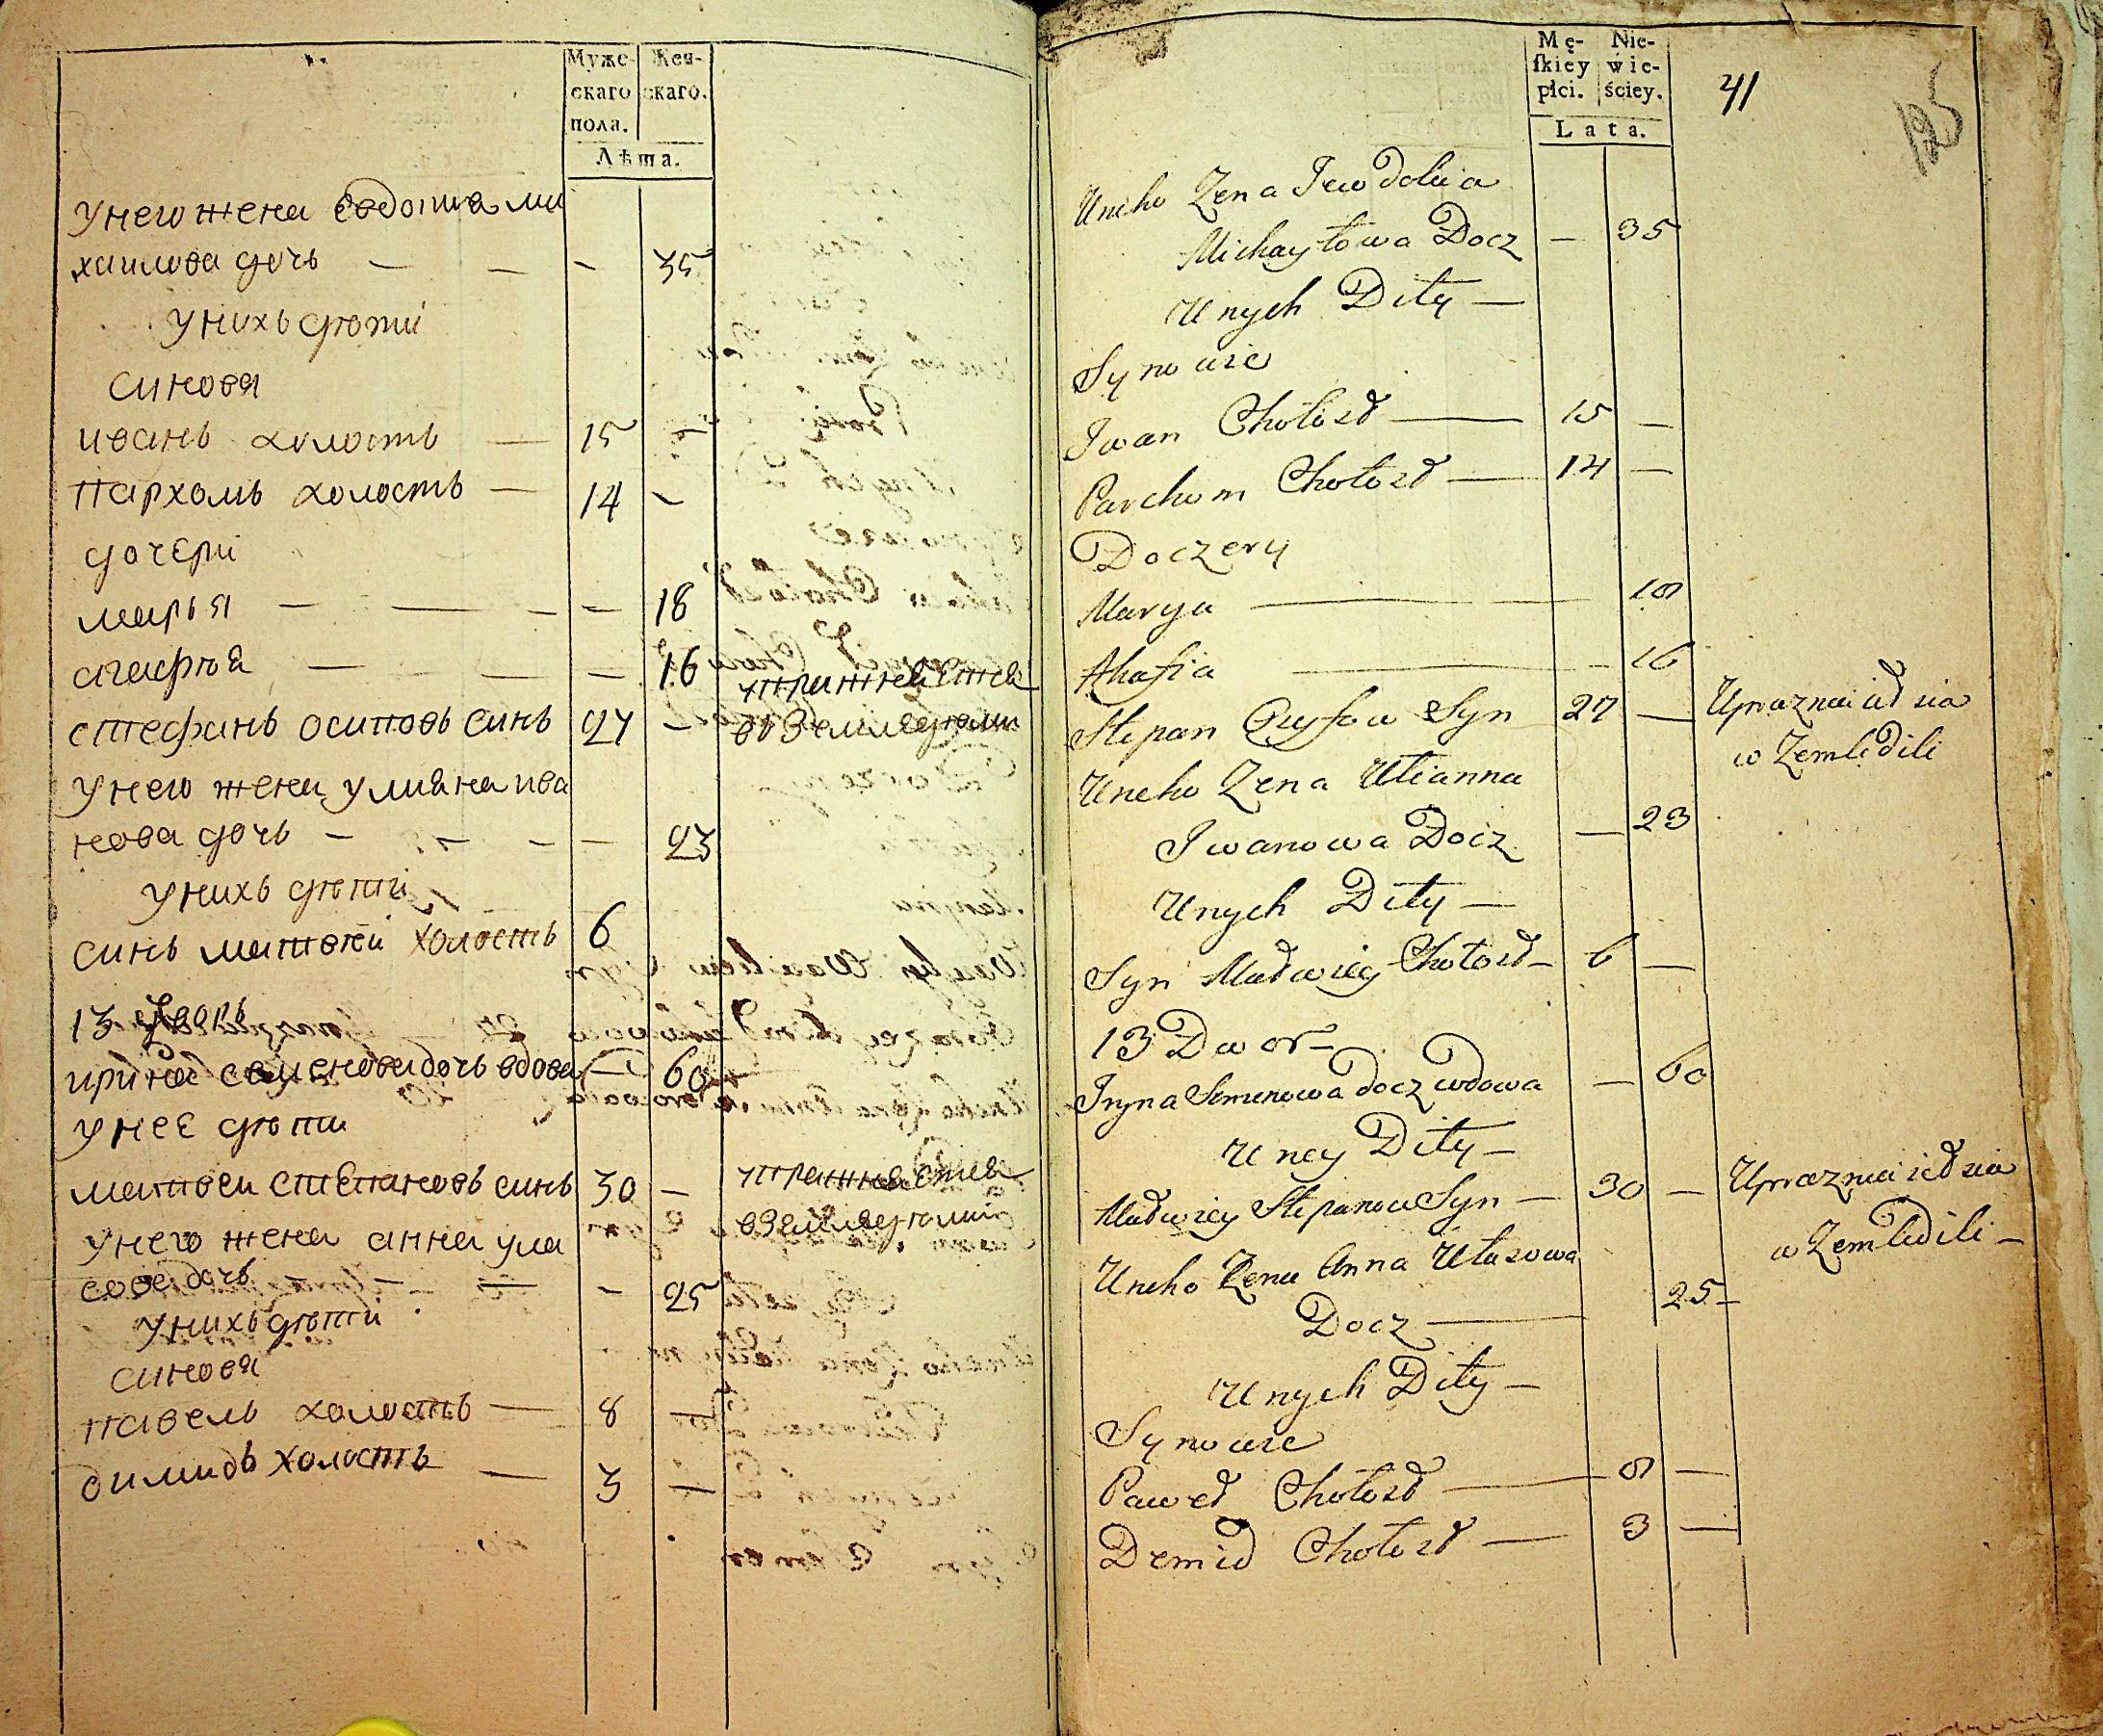 Муже-
скаго
пола.
Жен-
скаго.
Лѣта.
унего жена евдокия ми
хаилова дочь — — — 35
унихъ дѣти
синовя
иванъ холостъ — 15 —
пархомъ холостъ — 14 —
дочери
марья — — — — 18
агафия — — — 16
стефанъ осиповъ синъ 27 —
упражняется
въ земледѣлии
унего жена улияна ива
нова дочь — — — — 23
унихъ дѣти
синъ матвей холостъ 6
13 дворъ
ирина семенова дочь вдова — 60
унее дѣти
матвеи степановъ синъ 30 —
упражняется
вземледѣлии
унего жена анна ула
сова дочь — — — 25
унихъ дѣти
синовя
павелъ холостъ — 8 —
димидъ холостъ — 3 —
Mę-
skiey
płci.
Nie-
wie-
ściey.
Lata.
41
125
Uneho Zena Jewdokia
Michayłowa Docz — 35
Unych Dity —
Synowie
Iwan Chołost — 15 —
Parchom Chołost — 14 —
Doczery
Marya — 18
Ahafia — 16
Stepan Osyfow Syn 27 —
Upraznaietsia
w Zemledili
Uneho Zena Ulianna
Iwanowa Docz — 23
Unych Dity —
Syn Matwiey Chołost — 6 —
13 Dwor —
Iryna Semenowa docz wdowa — 60
Uney Dity —
Matwiey Stepanow Syn — 30 —
Upraznaietsia
w Zemledili —
Uneho Zena Anna Ułasowa
Docz — 25 —
Unych Dity —
Synowie
Paweł Chołost — 8 —
Demid Chołost — 3 —